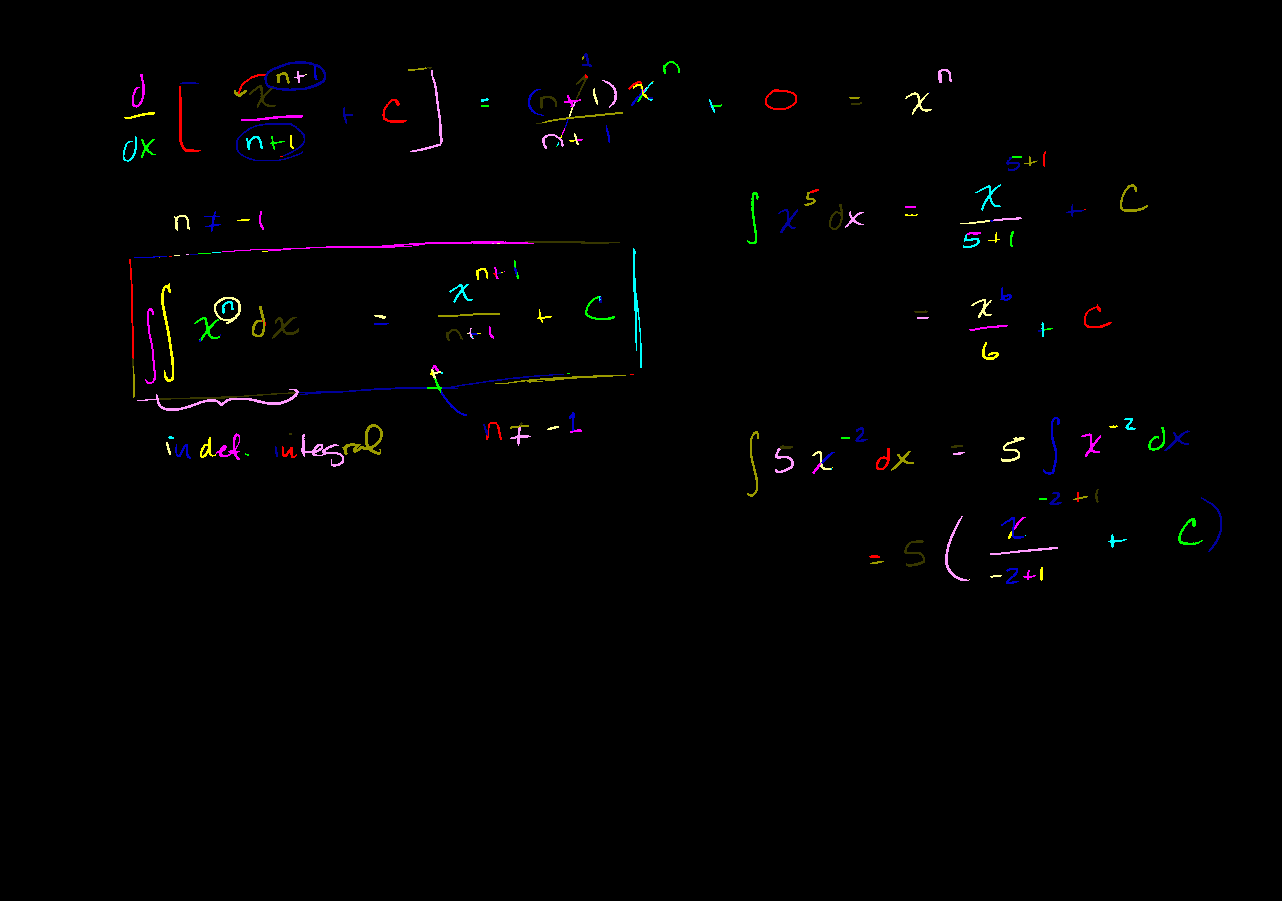 d/dx [ x^(n+1)/(n+1) + C ] = (n+1)x^n/(n+1) + 0 = x^n
n ≠ -1
∫∫ x^n dx = x^(n+1)/(n+1) + C
n ≠ -1
indef. integral
∫ x^5 dx = x^(5+1)/(5+1) + C
= x^6/6 + C
∫ 5 x^-2 dx = 5 ∫ x^-2 dx
= 5 ( x^(-2+1)/(-2+1) + C )